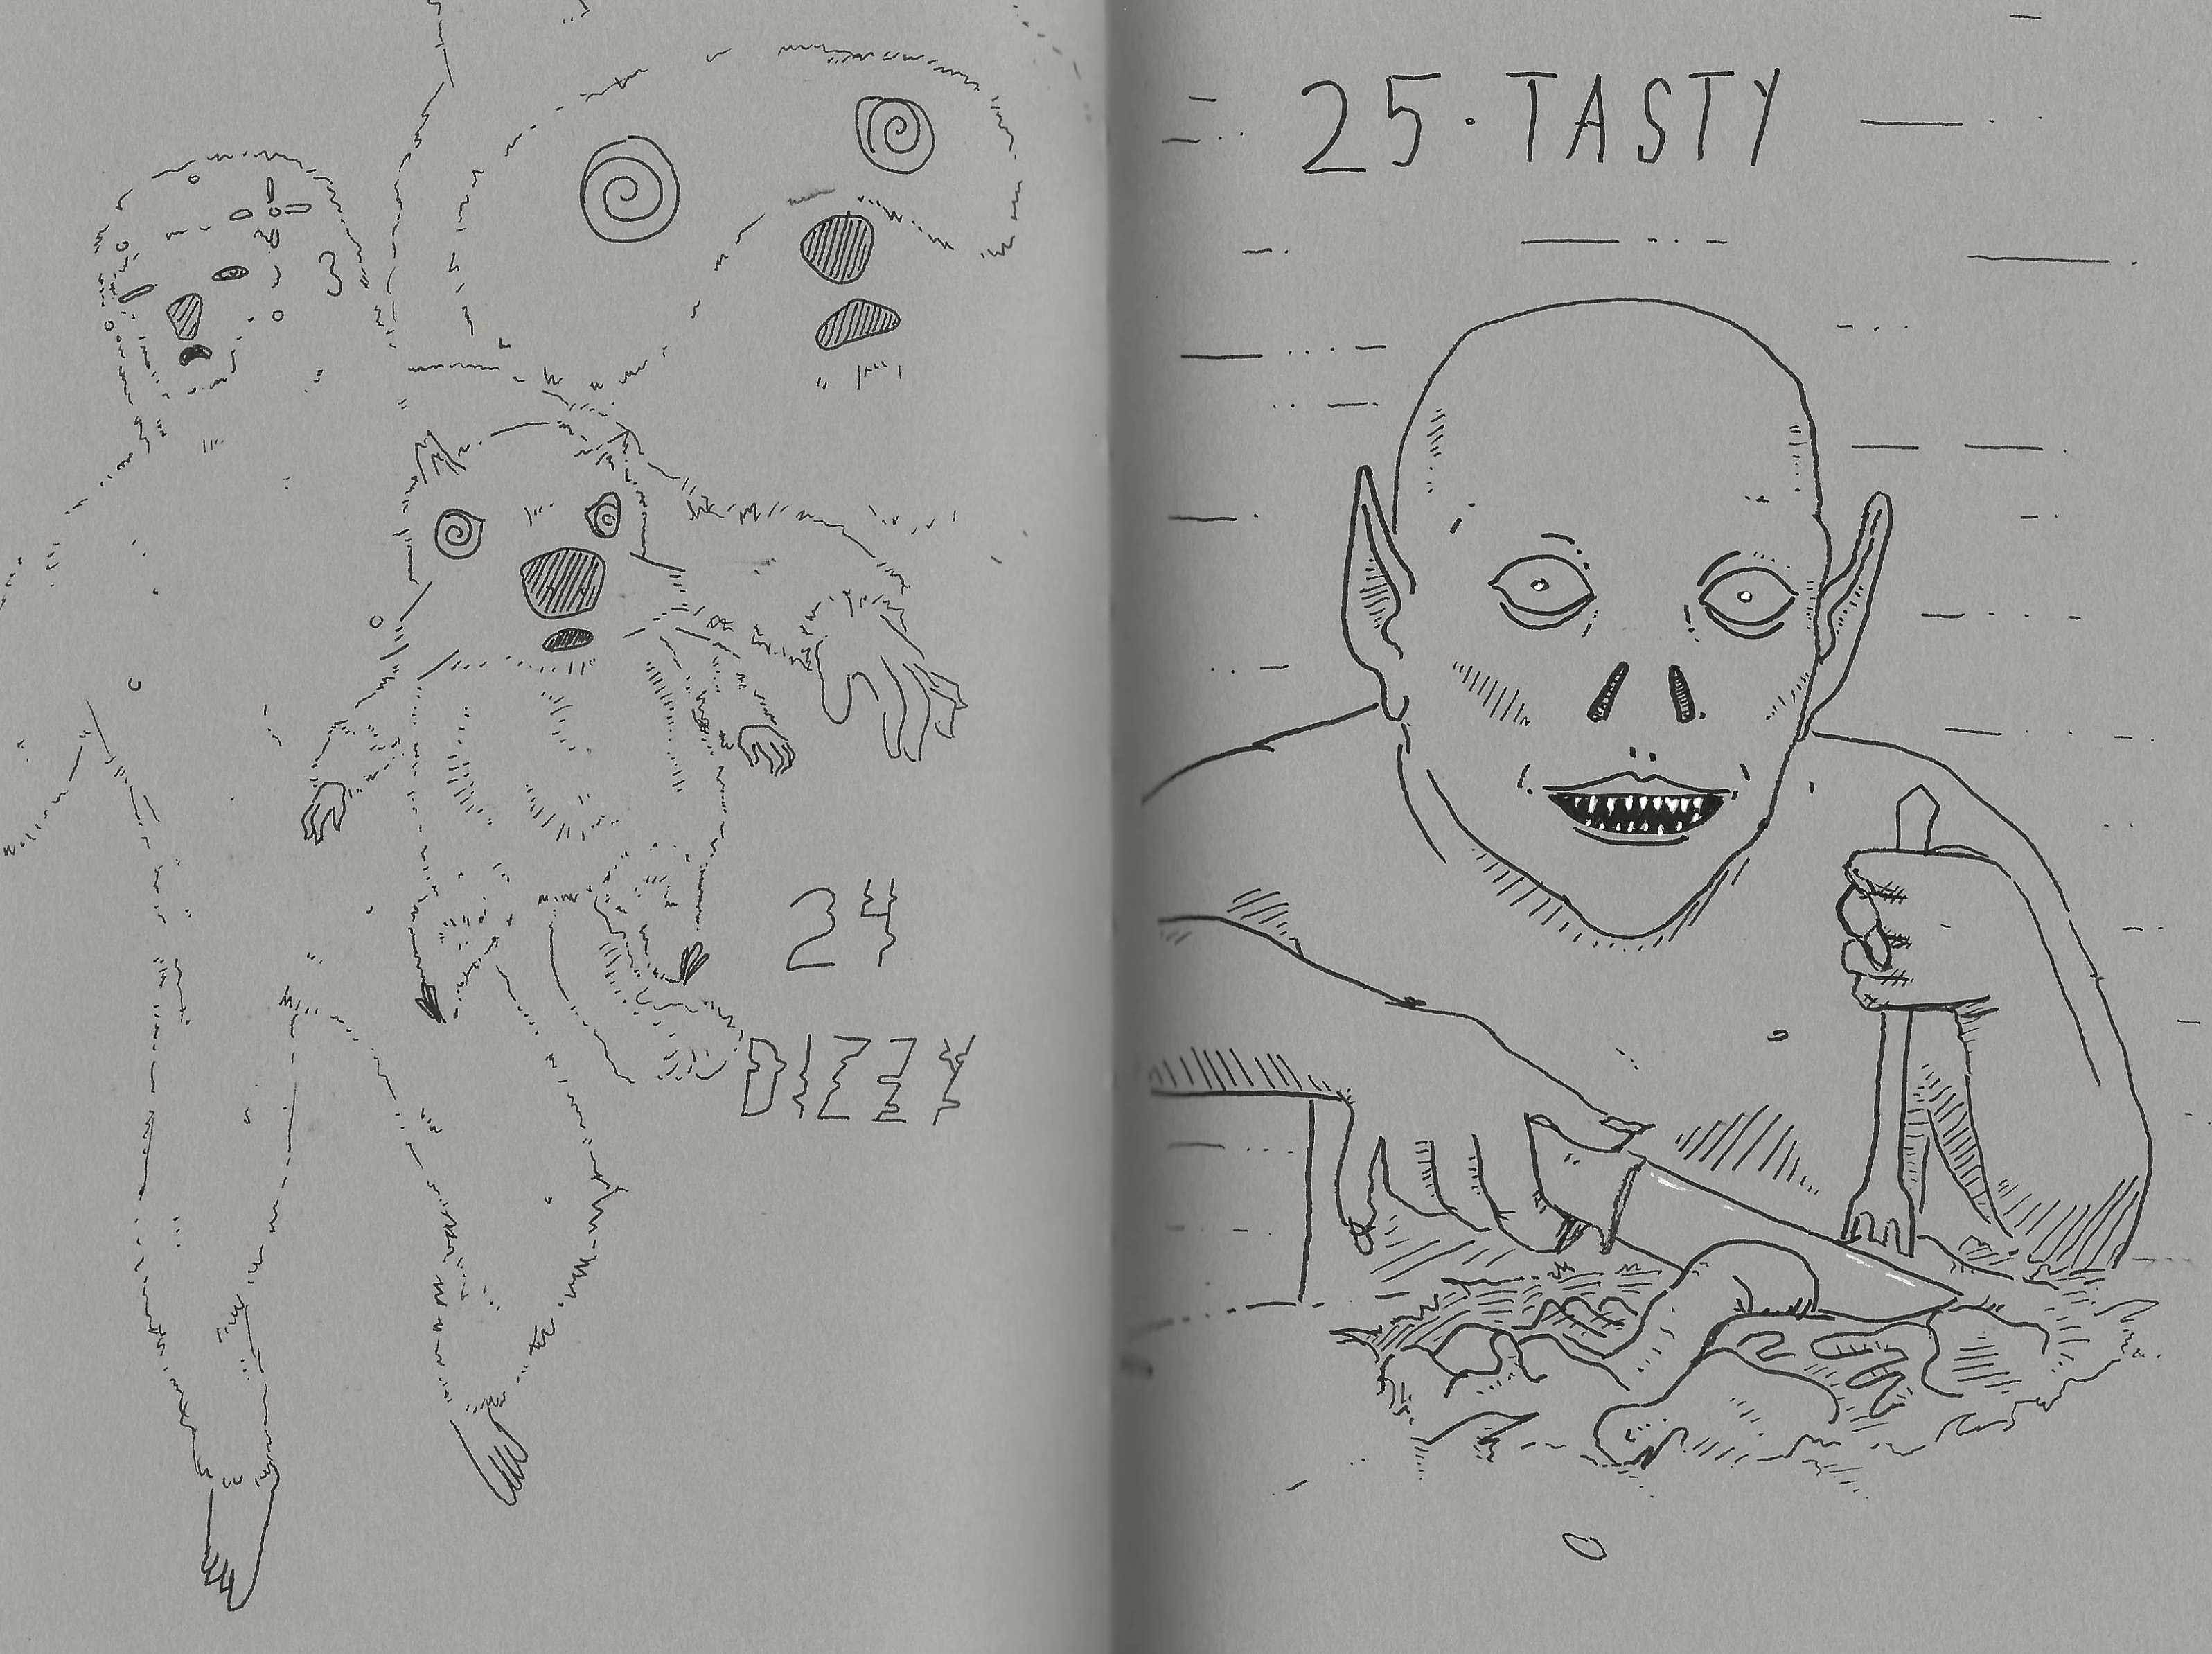 24
DIZZY
25·TASTY